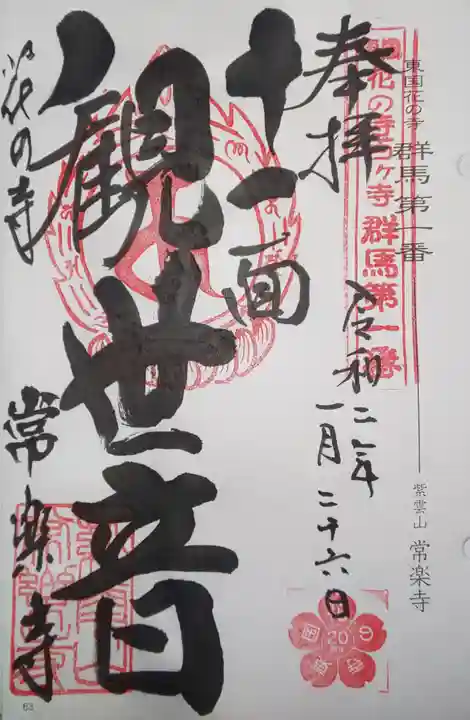 東国花の寺 群馬 第一番
紫雲山 常楽寺
東国花の寺百ヶ寺 群馬第一番
奉拝
令和二年
一月二十六日
十一面
観世音
花の寺
常楽寺
20
63